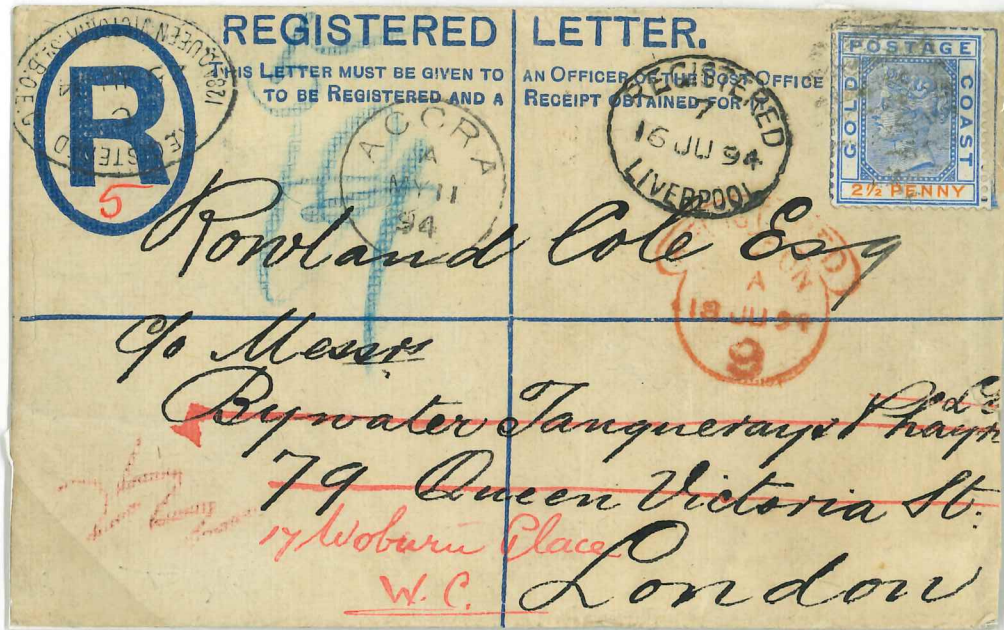 REGISTERED LETTER.
THIS LETTER MUST BE GIVEN TO AN OFFICER OF THE POST OFFICE
TO BE REGISTERED AND A RECEIPT OBTAINED FOR
R
5
REGISTERED
QUEEN VICTORIA ST. B.O. E.C.
ACCRA
A
MY 11
94
REGISTERED
7
16 JU 94
LIVERPOOL
POSTAGE
GOLD COAST
2½ PENNY
REGISTERED
LONDON
A
18 JU 94
9
Rowland Cole Esq
c/o Messrs
Bywater Tanqueray & Phayre
79 Queen Victoria St.
17 Woburn Place
W.C.
London